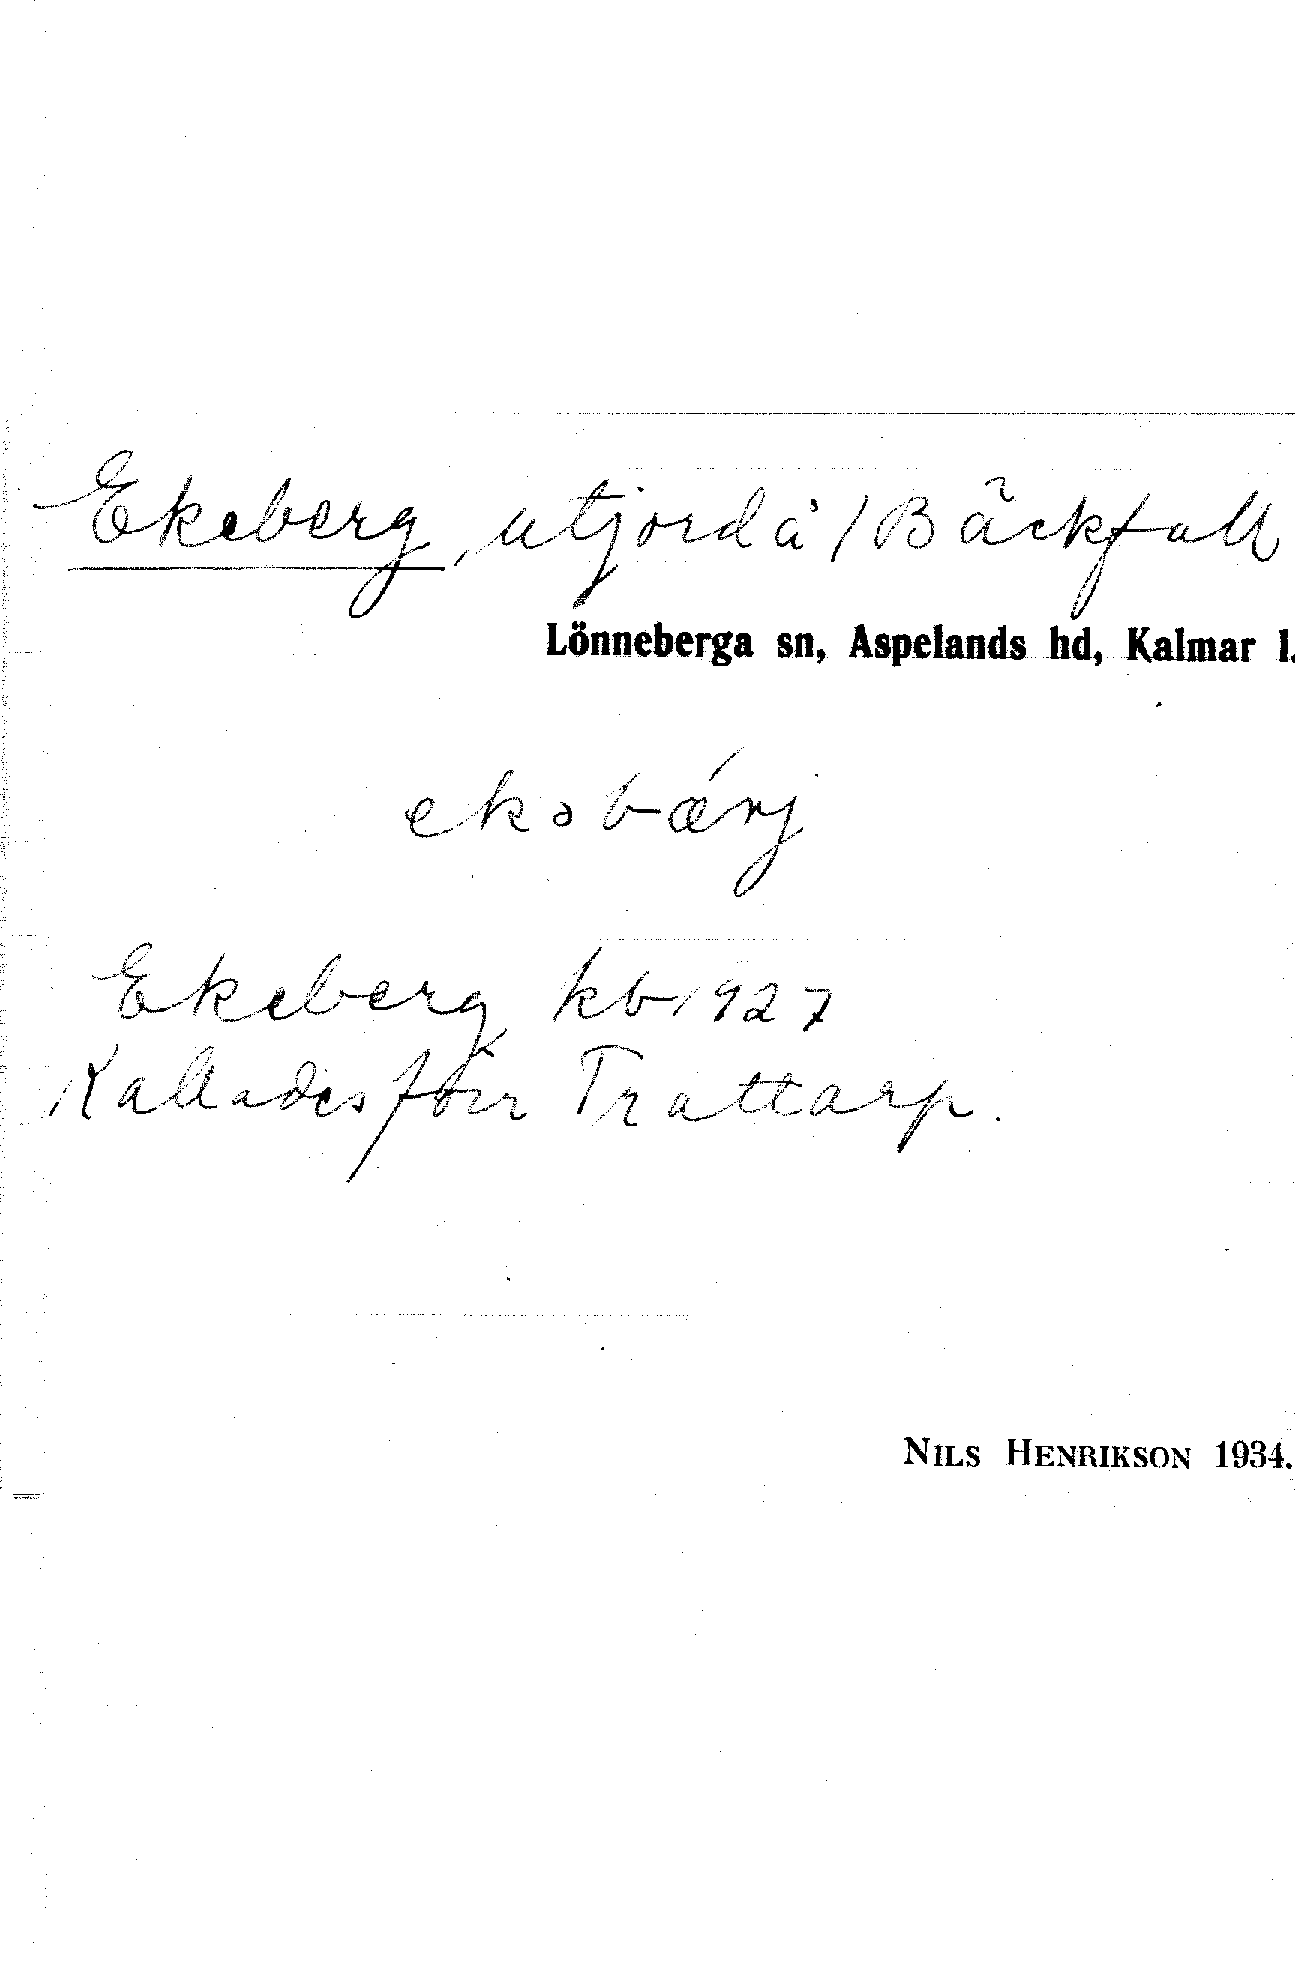 Ekeberg, utjord å / Bäckfall
Lönneberga sn, Aspelands hd, Kalmar l.
ekəbærj
Ekeberg kb 1927
Kallades förr Trattarp.
NILS HENRIKSON 1934.